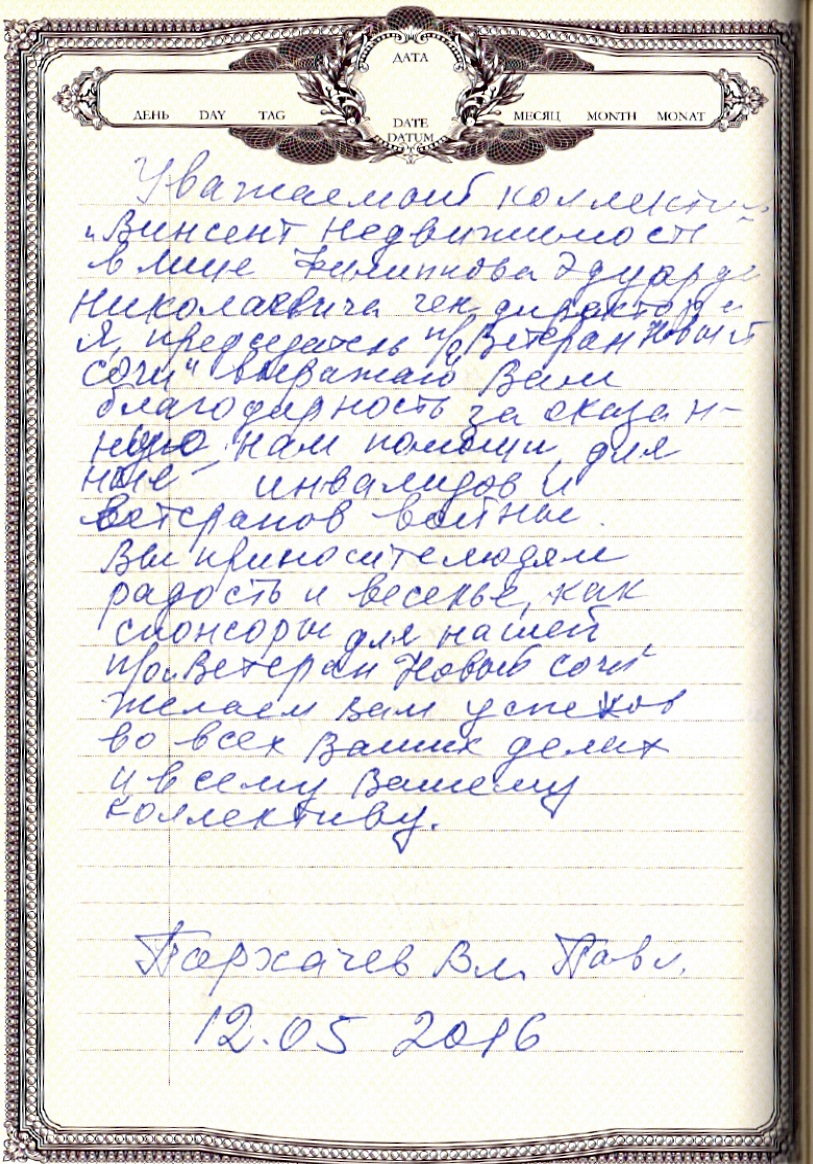 ДАТА
ДЕНЬ DAY TAG
DATE
DATUM
МЕСЯЦ MONTH MONAT
Уважаемый коллектив
„Винсент Недвижимость“
в лице Филиппова Эдуарда
Николаевича ген. директора
Я, председатель п/о „Ветеран Новый
Сочи“ выражаю Вам
благодарность за оказан-
ную нам помощи, для
инвалидов и
ветеранов войны.
Вы приносите людям
радость и веселье, как
спонсоры для нашей
п/о „Ветеран Новый Сочи“
желаем Вам успехов
во всех Ваших делах
и всему Вашему
коллективу.
Пархачев Вл. Павл.
12.05 2016